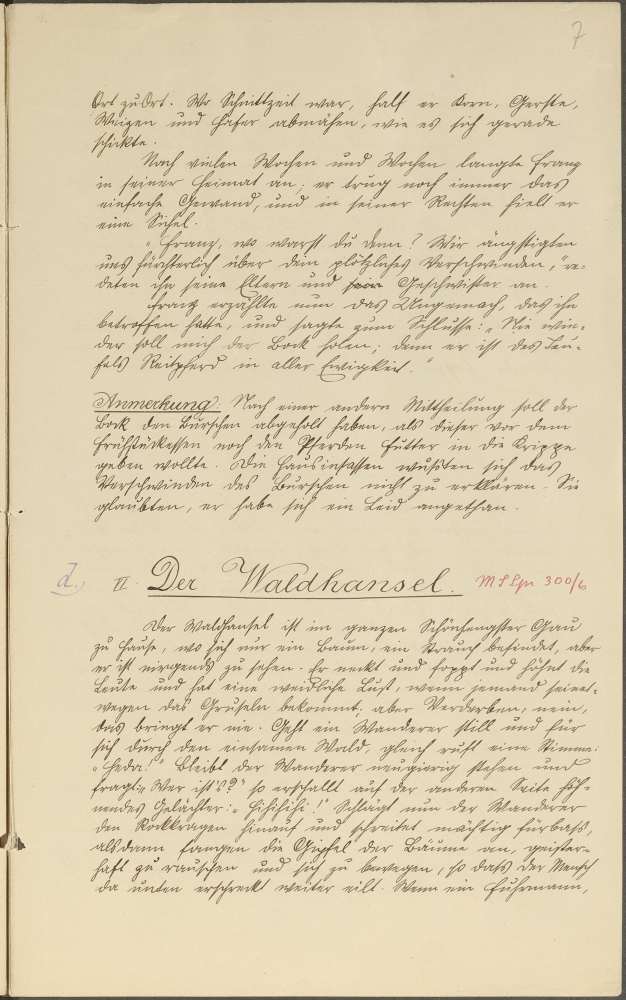 7
Ort zu Ort. Wo Schnittzeit war, half er Korn, Gerste,
Weizen und Hafer abmähen, wie es sich gerade
schickte.
Nach vielen Wochen und Wochen langte Franz
in seiner Heimat an; er trug noch immer das
einfache Gewand, und in seiner Rechten hielt er
eine Sichel.
"Franz, wo warst du denn? Wir ängstigten
uns fürchterlich über dein plötzliches Verschwinden," re-
deten ihn seine Eltern und Geschwister an.
Franz erzählte nun das Ungemach, das ihn
betroffen hatte, und sagte zum Schlusse: "Nie wie-
der soll mich der Bock holen; denn er ist des Teu-
fels Reitpferd in aller Ewigkeit."
Anmerkung: Nach einer andern Mittheilung soll der
Bock den Burschen abgeholt haben, als dieser vor dem
Frühstückessen noch den Pferden Futter in die Krippe
geben wollte. Die Hausinsassen wußten sich das
Verschwinden des Burschen nicht zu erklären. Sie
glaubten, er habe sich ein Leid angethan.
d., VI. Der Waldhansel. 300/6
Der Waldhansel ist im ganzen Schönhengster Gau
zu Hause, wo sich nur ein Baum, ein Strauch befindet, aber
er ist nirgends zu sehen. Er neckt und foppt und höhnt die
Leute und hat eine weidliche Lust, wenn jemand seinet-
wegen das Gruseln bekommt; aber Verderben, nein,
das bringt er nie. Geht ein Wanderer still und für
sich durch den einsamen Wald, gleich ruft eine Stimme:
"Heda!" Bleibt der Wanderer neugierig stehen und
fragt: "Wer ist's?" so erschallt auf der anderen Seite höh-
nendes Gelächter: "Hihihihi!" Schlägt nun der Wanderer
den Rockkragen hinauf und schreitet mächtig fürbaß,
alsdann fangen die Gipfel der Bäume an, geister-
haft zu rauschen und sich zu bewegen, so daß der Mensch
da unten erschreckt weiter eilt. Wenn ein Fuhrmann,